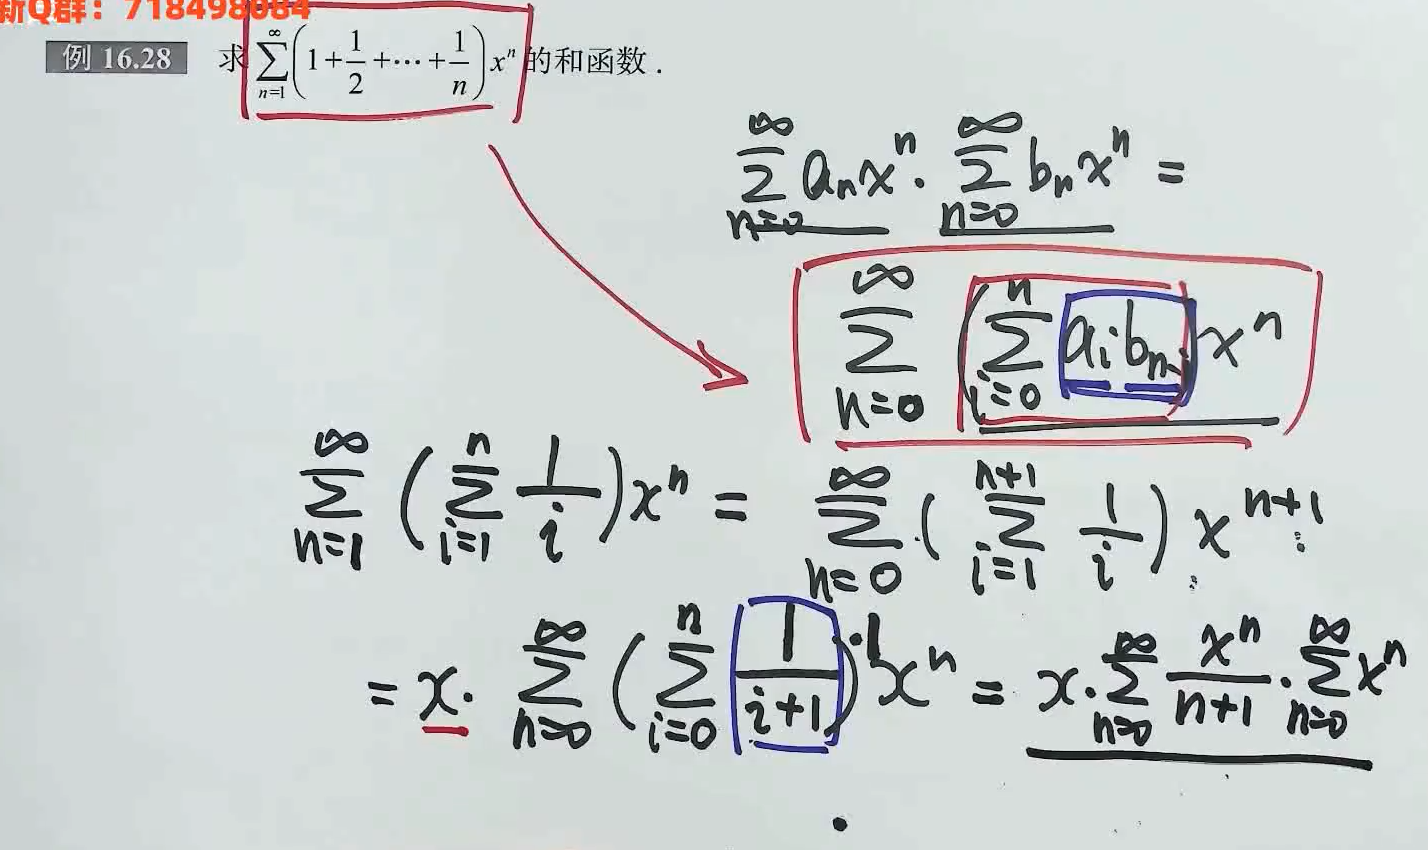 新Q群：718498084
例 16.28 求 \sum_{n=1}^{\infty}\left(1+\frac{1}{2}+\cdots+\frac{1}{n}\right)x^n 的和函数.
\sum_{n=0}^{\infty} a_n x^n \cdot \sum_{n=0}^{\infty} b_n x^n =
\sum_{n=0}^{\infty}\left(\sum_{i=0}^{n} a_i b_{n-i}\right)x^n
\sum_{n=1}^{\infty}\left(\sum_{i=1}^{n}\frac{1}{i}\right)x^n = \sum_{n=0}^{\infty}\left(\sum_{i=1}^{n+1}\frac{1}{i}\right)x^{n+1}
= x \cdot \sum_{n=0}^{\infty}\left(\sum_{i=0}^{n}\frac{1}{i+1}\right)\cdot 1 x^n = x \cdot \sum_{n=0}^{\infty}\frac{x^n}{n+1} \cdot \sum_{n=0}^{\infty} x^n